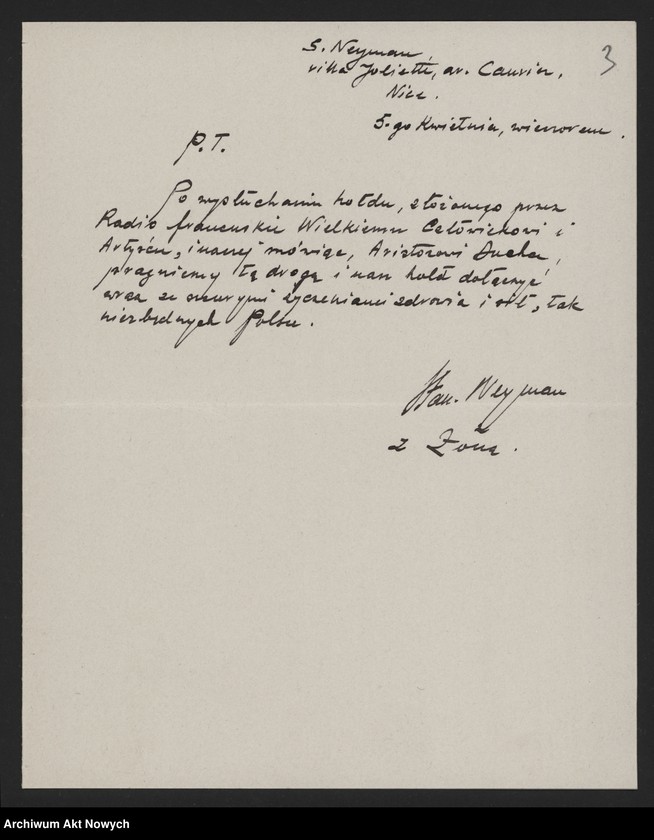 S. Neyman,
villa Joliette, av. Cauvin,
Nice.
3
5-go Kwietnia, wieczorem.
P.T.
Po wysłuchaniu hołdu, złożonego przez
Radio francuskie Wielkiemu Człowiekowi i
Artyście, inaczej mówiąc, Aristosowi Ducha,
pragniemy tą drogą i nasz hołd dołączyć
wraz ze szczerymi życzeniami zdrowia i sił, tak
niezbędnych Polsce.
Stan. Neyman
z Żoną.
Archiwum Akt Nowych